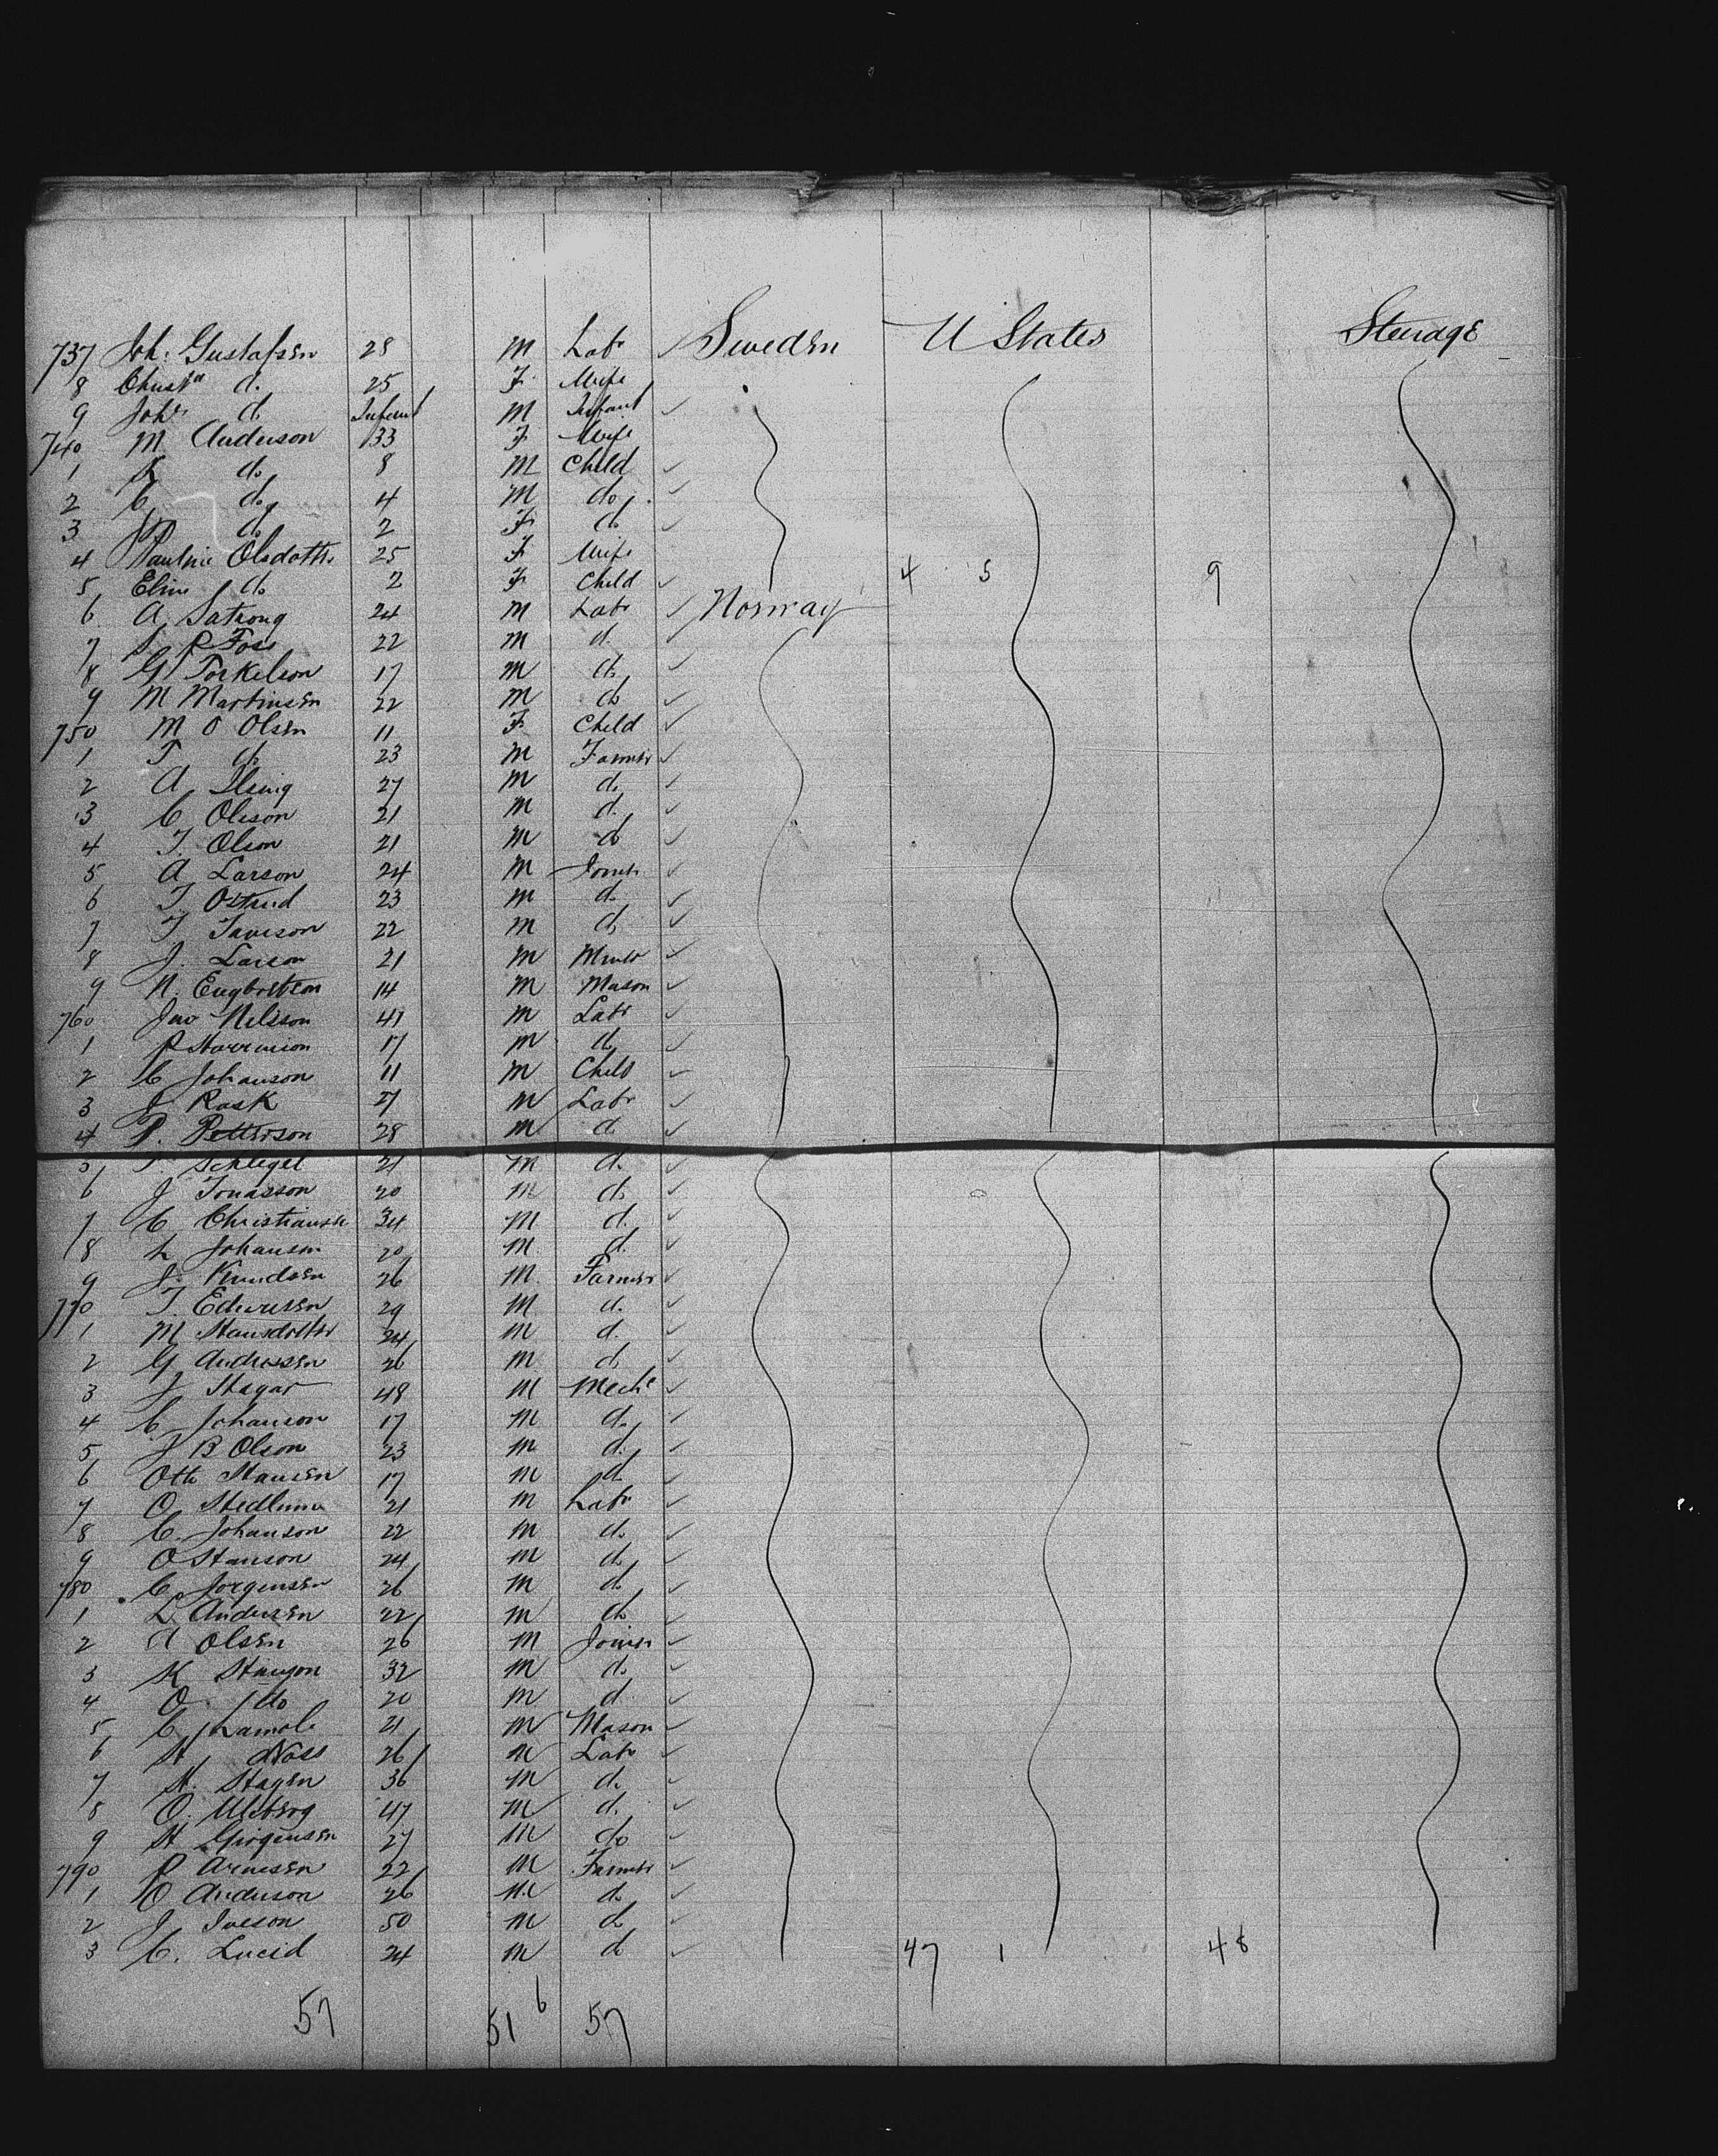 737 Joh. Gustafsen 28 M Labr Sweden U States Steerage
8 Christa d. 25 F Wife
9 Joh. d. Infant M Infant
740 M Anderson 33 F Wife
1 do 8 M Child
2 C do 4 M do
3 do 2 F do
4 Pauline Olsdottr 25 F Wife
5 Elin do 2 F Child 4 5 9
6 A. 24 M Labr Norway
7 P Foss 22 M d.
8 G Torkelson 17 M do
9 M Martinsen 22 M do
750 M O Olsen 11 F Child
1 T do 23 M Farmer
2 A. 27 M do
3 C Olsson 21 M d.
4 T. Olson 21 M do
5 A Larson 24 M Joiner
6 T. 23 M do
7 T 22 M do
8 J. Larson 21 M Miner
9 N. Engbretson 14 M Mason
760 Jno Nelsson 41 M Labr
1 P Harrison 17 M do
2 C Johanson 11 M Child
3 J Rask 27 M Labr
4 P. Petterson 28 M d
5 Schlegel 21 M d.
6 J Jonasson 20 M do
7 C Christiansn 34 M d.
8 L Johansn 20 M d.
9 J. Knudsen 26 M. Farmer
770 T. 29 M d.
1 M Hansdotter 24 M d.
2 G Andressen 26 M d
3 J Hagar 48 M Meche
4 C Johanson 17 M do
5 J B Olson 23 M d.
6 Otto Hansen 17 M d
7 O 21 M Labr
8 C. Johanson 22 M do
9 O Hanson 24 M do
780 C. Jorgensen 26 M do
1 L Andersen 22 M do
2 A Olsen 26 M Joiner
3 K Hanson 32 M do
4 O. do 20 M d
5 C 21 M Mason
6 H 26 M Labr
7 H. Hagen 36 M do
8 O. Ulsberg 47 M d.
9 H Girgensen 27 M do
790 P Arnesen 22 M Farmer
1 O Anderson 26 M do
2 J Iveson 50 M do
3 C. Lucid 24 M do 47 1 48
57 51 6 57